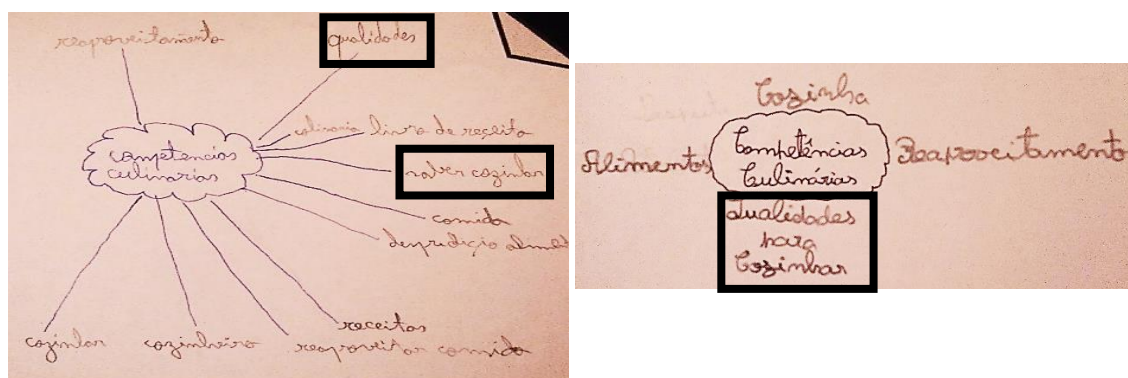 reaproveitamento
qualidades
culinaria livro de reçeita
competencias
culinarias
saber cozinhar
comida
despridiçio
receitas
cozinhar
cozinheiro
reaproveitar comida
Cozinha
Alimentos
Competências
Culinárias
Reaproveitamento
Qualidades
para
Cozinhar